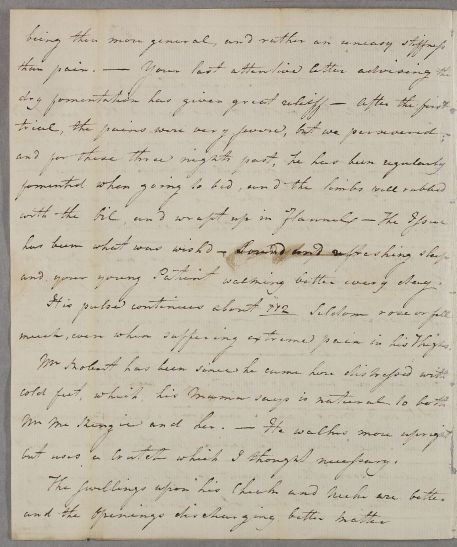 being then more general, and rather an uneasy stiffness
than pain. — Your last attentive letter advising the
dry fomentation has given great relieff — After the first
trial, the pains were very severe, but we persevered,
and for these three nights past, he has been regularly
fomented when going to bed, and the limbs well rubbed
with the Oil, and wrapt up in Flannels — The Issue
has been what was wish'd — Sound and refreshing sleep
and your young Patient walking better every day.
His pulse continues about Seldom rose or fell
much, even when suffering extreme pain in his Thighs.
Mr Robert has been since he came here distressed with
cold feet, which his Mama says is natural to both
Mr and her. — He walks more upright
but uses a Crutch which I thought necessary.
The Swellings upon his Cheek and Neck are better
and the Openings discharging better matter